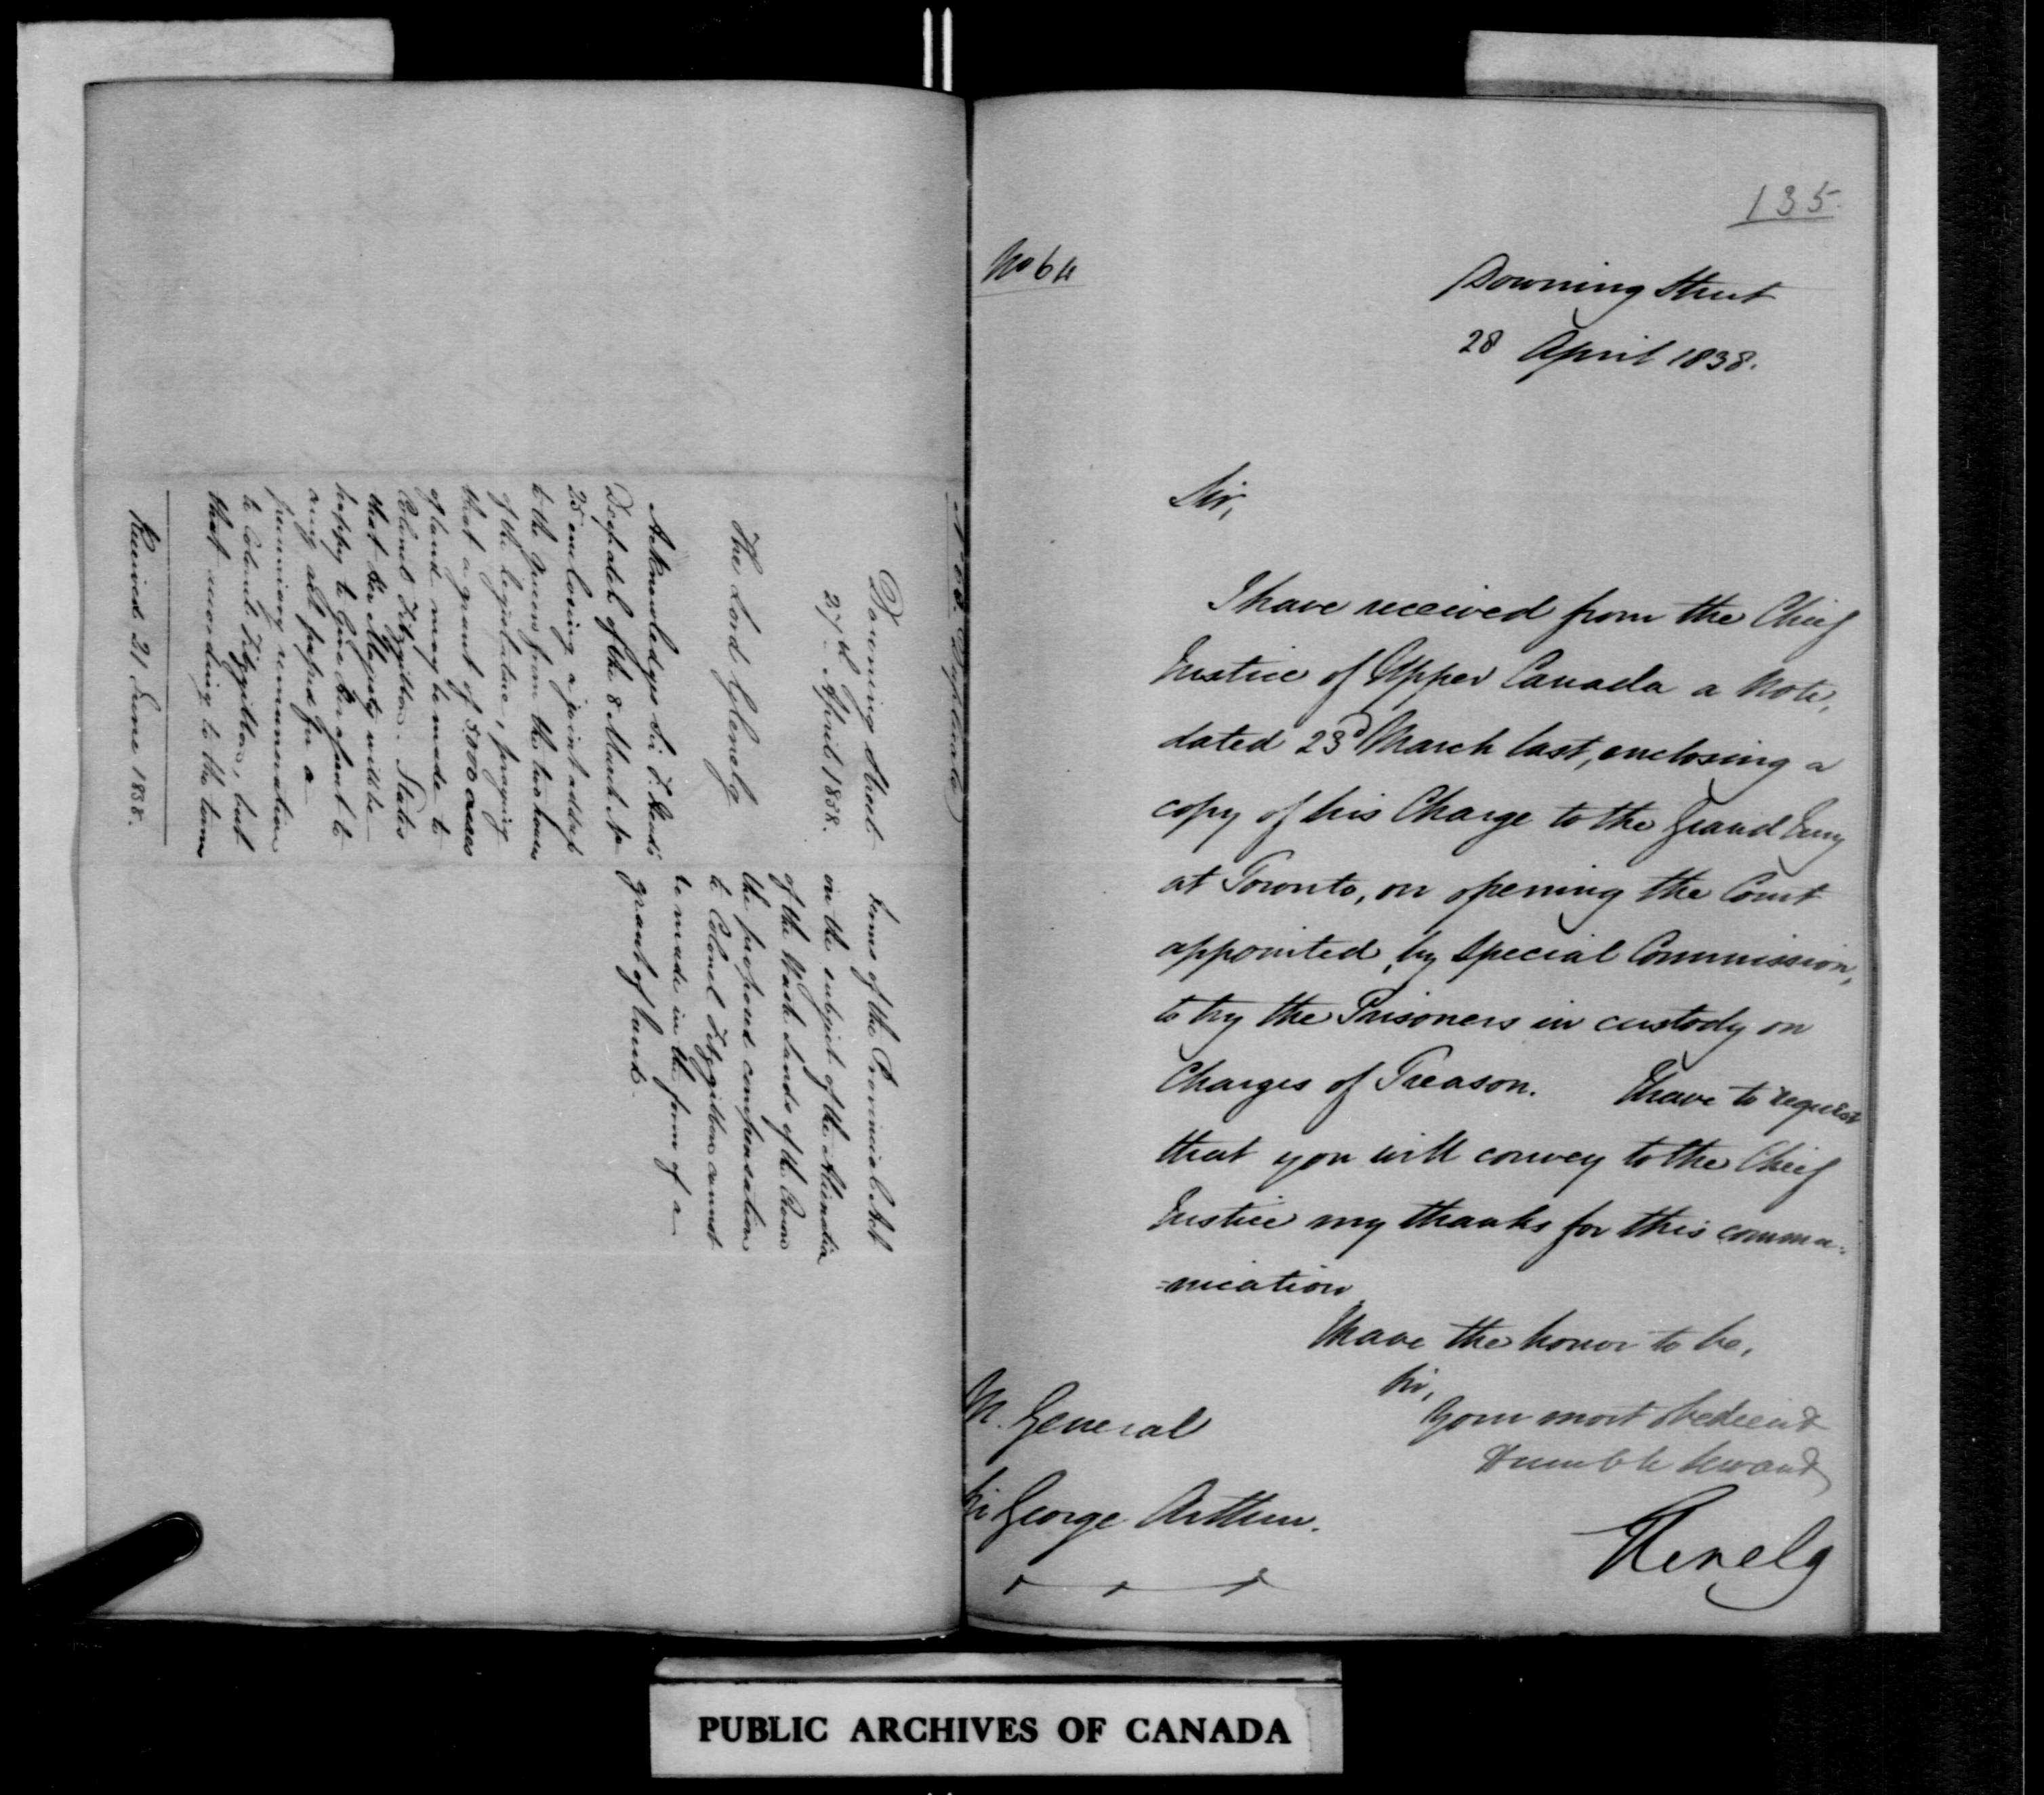 (Duplicate)
Downing Street
27th April 1838.
The Lord Glenelg
Acknowledges Sir F. Head's
Despatch of the 8 March No
25 enclosing a joint address
to the Queen from the two houses
of the Legislature, praying
that a grant of 5000 acres
of land may be made to
Colonel Fitzgibbon. States
that Her Majesty will be
happy to give Her assent to
any act passed for a
pecuniary remuneration
to Colonel Fitzgibbon, but
that according to the terms
Received 21 June 1838.
terms of the Provincial Act
on the subject of the Alienation
of the Waste Lands of the Crown
the proposed compensation
to Colonel Fitzgibbon cannot
be made in the form of a
grant of land.
135.
No 64
Downing Street
28 April 1838.
Sir,
I have received from the Chief
Justice of Upper Canada a Note,
dated 23d March last, enclosing a
copy of his Charge to the Grand Jury
at Toronto, on opening the Court
appointed, by Special Commission,
to try the Prisoners in custody on
Charges of Treason. I have to request
that you will convey to the Chief
Justice my thanks for this commu=
=nication
I have the honor to be,
Sir,
Your most obedient
Humble Servant
Glenelg
M. General
Sir George Arthur.
PUBLIC ARCHIVES OF CANADA